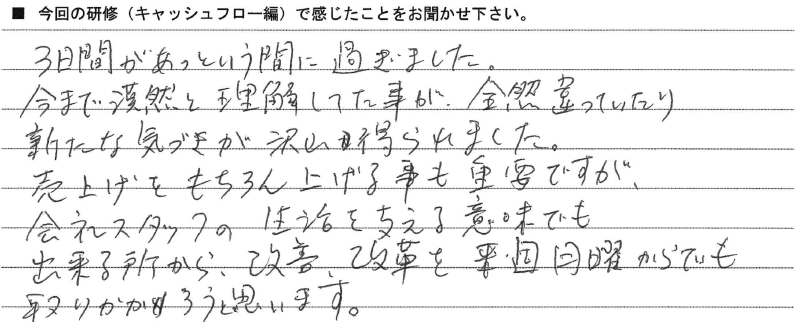 ■ 今回の研修（キャッシュフロー編）で感じたことをお聞かせ下さい。
3日間があっという間に過ぎました。
今まで漠然と理解してた事が、全然違っていたり
新たな気づきが沢山得られました。
売上げをもちろん上げる事も重要ですが、
会社スタッフの生活を支える意味でも
出来る所から、改善、改革を来週日曜からでも
取りかかろうと思います。